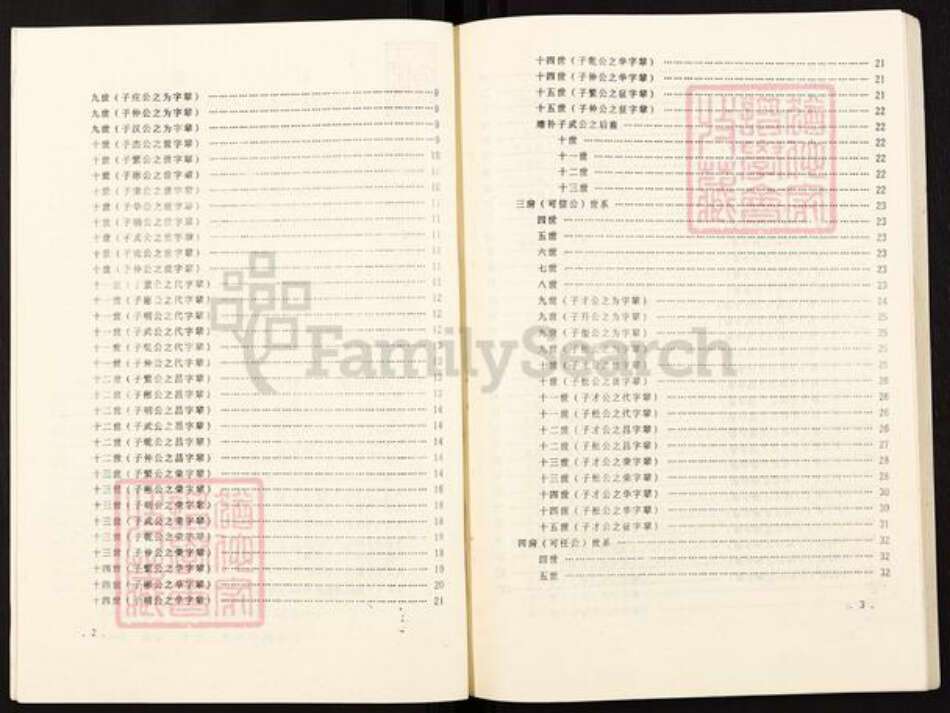 九世（子应公之为字辈）……9
九世（子仲公之为字辈）……9
九世（子汉公之为字辈）……9
十世（子杰公之世字辈）……9
十世（子繁公之世字辈）……10
十世（子彬公之世字辈）……10
十世（子 公之世字辈）……10
十世（子华公之世字辈）……11
十世（子明公之世字辈）……11
十世（子武公之世字辈）……11
十世（子乾公之世字辈）……11
十世（子仲公之世字辈）……11
十一世（子繁公之代字辈）……12
十一世（子彬公之代字辈）……12
十一世（子明公之代字辈）……12
十一世（子武公之代字辈）
十一世（子乾公之代字辈）
十一世（子仲公之代字辈）
十二世（子繁公之昌字辈）……13
十二世（子彬公之昌字辈）
十二世（子明公之昌字辈）……14
十二世（子武公之昌字辈）……14
十二世（子乾公之昌字辈）……14
十二世（子仲公之昌字辈）……14
十三世（子繁公之荣字辈）……14
十三世（子彬公之荣字辈）……16
十三世（子明公之荣字辈）……18
十三世（子武公之荣字辈）……18
十三世（子乾公之荣字辈）……18
十三世（子仲公之荣字辈）……18
十四世（子繁公之华字辈）……19
十四世（子彬公之华字辈）……20
十四世（子明公之华字辈）……21
. 2 .
十四世（子乾公之华字辈）……21
十四世（子仲公之华字辈）……21
十五世（子繁公之征字辈）……22
十五世（子仲公之征字辈）……22
增补子武公之后裔……22
十世……22
十一世……22
十二世……22
十三世……22
三房（可信公）世系……23
四世……23
五世……23
六世……23
七世……23
八世……23
九世（子才公之为字辈）……24
九世（子月公之为字辈）……25
九世（子松公之为字辈）……25
十世（子 公之世字辈）……25
十世（子 公之世字辈）……25
十世（子松公之世字辈）……25
十一世（子才公之代字辈）……26
十一世（子松公之代字辈）……26
十二世（子才公之昌字辈）……26
十二世（子松公之昌字辈）……27
十三世（子才公之荣字辈）……28
十三世（子松公之荣字辈）
十四世（子才公之华字辈）……30
十四世（子松公之华字辈）……30
十五世（子才公之征字辈）……31
四房（可任公）世系……32
四世……32
五世……32
. 3 .
FamilySearch